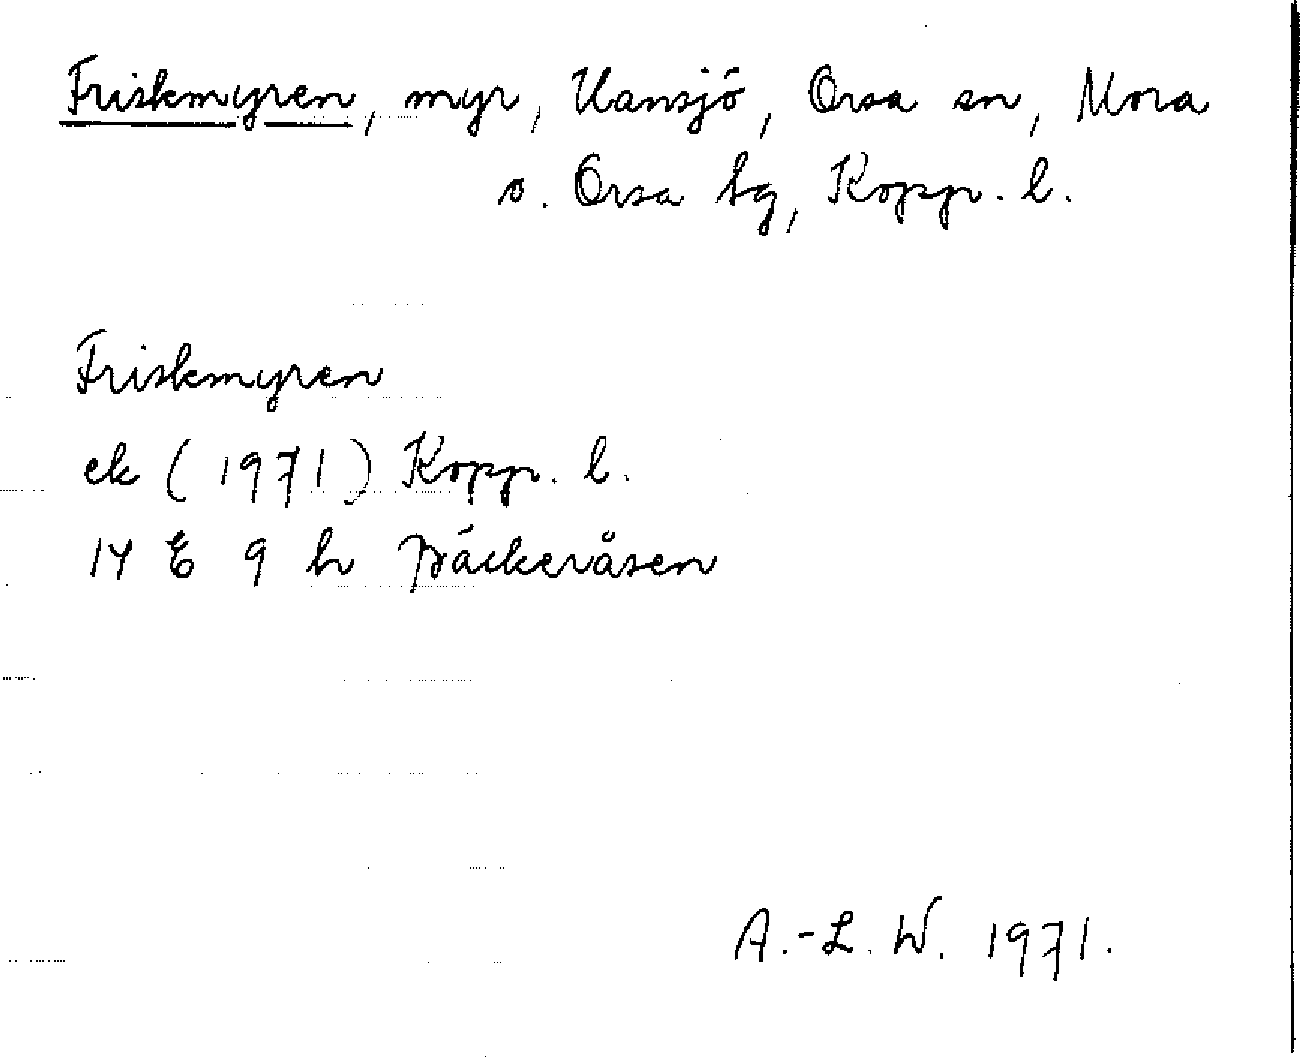 Friskmyren, myr, Hansjö, Orsa sn, Mora
o. Orsa tg, Kopp. l.
Friskmyren
ek (1971) Kopp. l.
14 E 9 h Päckeråsen
A.-L. W. 1971.